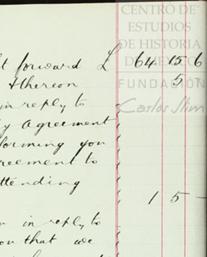 CENTRO DE
ESTUDIOS
DE HISTORIA
DE MEXICO
FUNDACIÓN
Carlos Slim
t forward £ 64 15 6
thereon 5
in reply to
y agreement
forming you
reement to
ttending
1 5 -
in in reply to
you that we